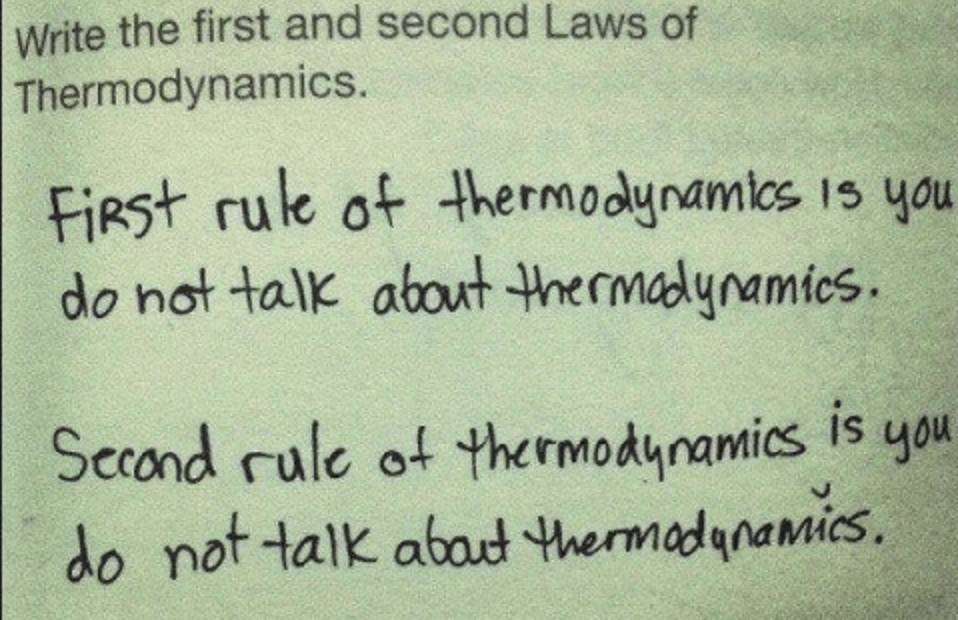 Write the first and second Laws of
Thermodynamics.
First rule of thermodynamics is you
do not talk about thermodynamics.
Second rule of thermodynamics is you
do not talk about thermodynamics.